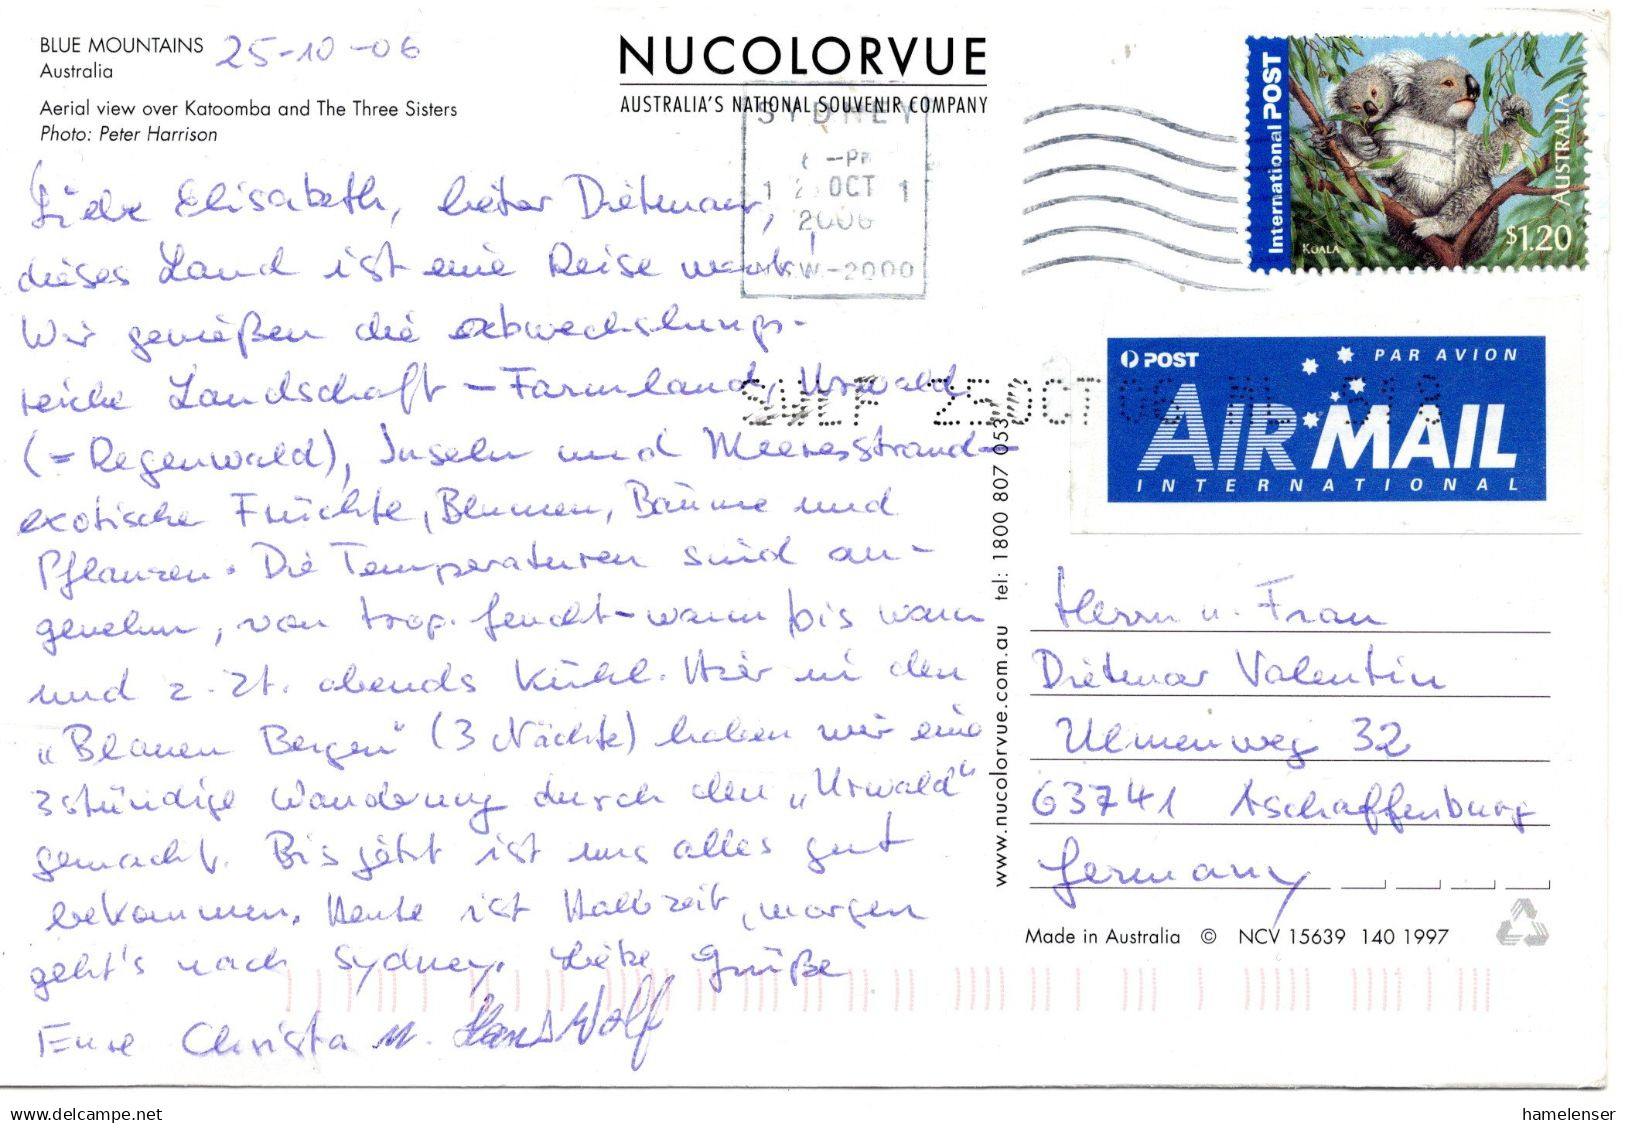 BLUE MOUNTAINS 25-10-06
Australia
Aerial view over Katoomba and The Three Sisters
Photo: Peter Harrison
NUCOLORVUE
AUSTRALIA'S NATIONAL SOUVENIR COMPANY
SYDNEY
-PM
1 2 OCT 1
2006
NSW-2000
International POST
AUSTRALIA
KOALA
$1.20
POST
PAR AVION
AIR MAIL
INTERNATIONAL
SWLF 25 OCT 06 ML 318
Liebe Elisabeth, lieber Dietmar,
dieses Land ist eine Reise wert!
Wir genießen die abwechslungs-
reiche Landschaft - Farmland, Urwald
(= Regenwald), Inseln und Meeresstrand-
exotische Früchte, Blumen, Bäume und
Pflanzen. Die Temperaturen sind an-
genehm, von trop. feucht-warm bis warm
und z. Zt. abends kühl. Hier in den
"Blauen Bergen" (3 Nächte) haben wir eine
3stündige Wanderung durch den "Urwald"
gemacht. Bis jetzt ist uns alles gut
bekommen. Heute ist Halbzeit, morgen
geht's nach Sydney. Liebe Grüße
Eure Christa u. Hans Wolf
www.nucolorvue.com.au tel: 1800 807 053
Herrn u. Frau
Dietmar Valentin
Ulmenweg 32
63741 Aschaffenburg
Germany
Made in Australia © NCV 15639 140 1997
delcampe.net
hamelenser